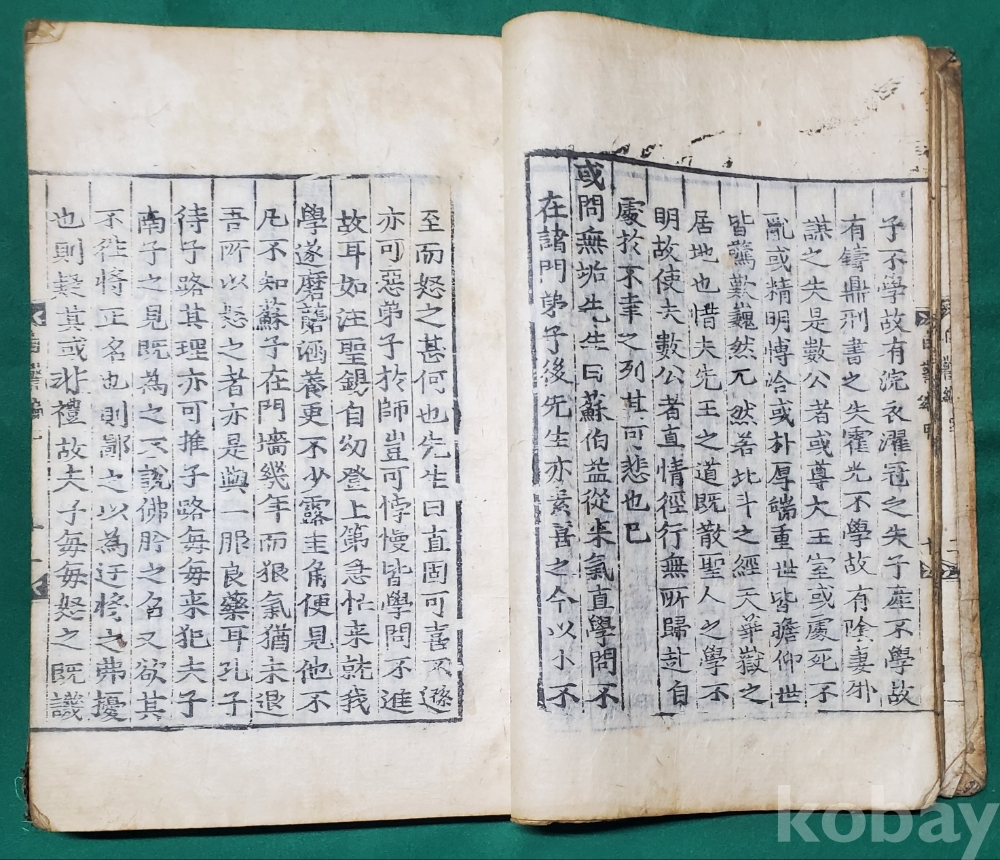 子不學故有浣衣濯冠之失子產不學故
有鑄鼎刑書之失霍光不學故有陰妻邪
謀之失是數公者或尊大王室或處死不
亂或精明博洽或朴厚端重世皆瞻仰世
皆驚歎巍然兀然若北斗之經天華嶽之
居地也惜夫先王之道旣散聖人之學不
明故使夫數公者直情徑行無所歸卦自
處於不幸之列甚可悲也已
或問無垢先生曰蘇伯益從來氣直學問不
在諸門弟子後先生亦素喜之今以小不
至而怒之甚何也先生曰直固可喜不遜
亦可惡弟子於師豈可悖慢皆學問不進
故耳如汪聖錫自幼登上第急忙来就我
學遂磨礱涵養更不少露圭角便見他不
凡不知蘇子在門墻幾年而狠氣猶未退
吾所以怒之者亦是與一服良藥耳孔子
待子路其理亦可推子路每每来犯夫子
南子之見旣為之不說佛肸之召又欲其
不往將正名也則鄙之以為迂侈之弗擾
也則疑其或非禮故夫子每每怒之旣譏
kobay